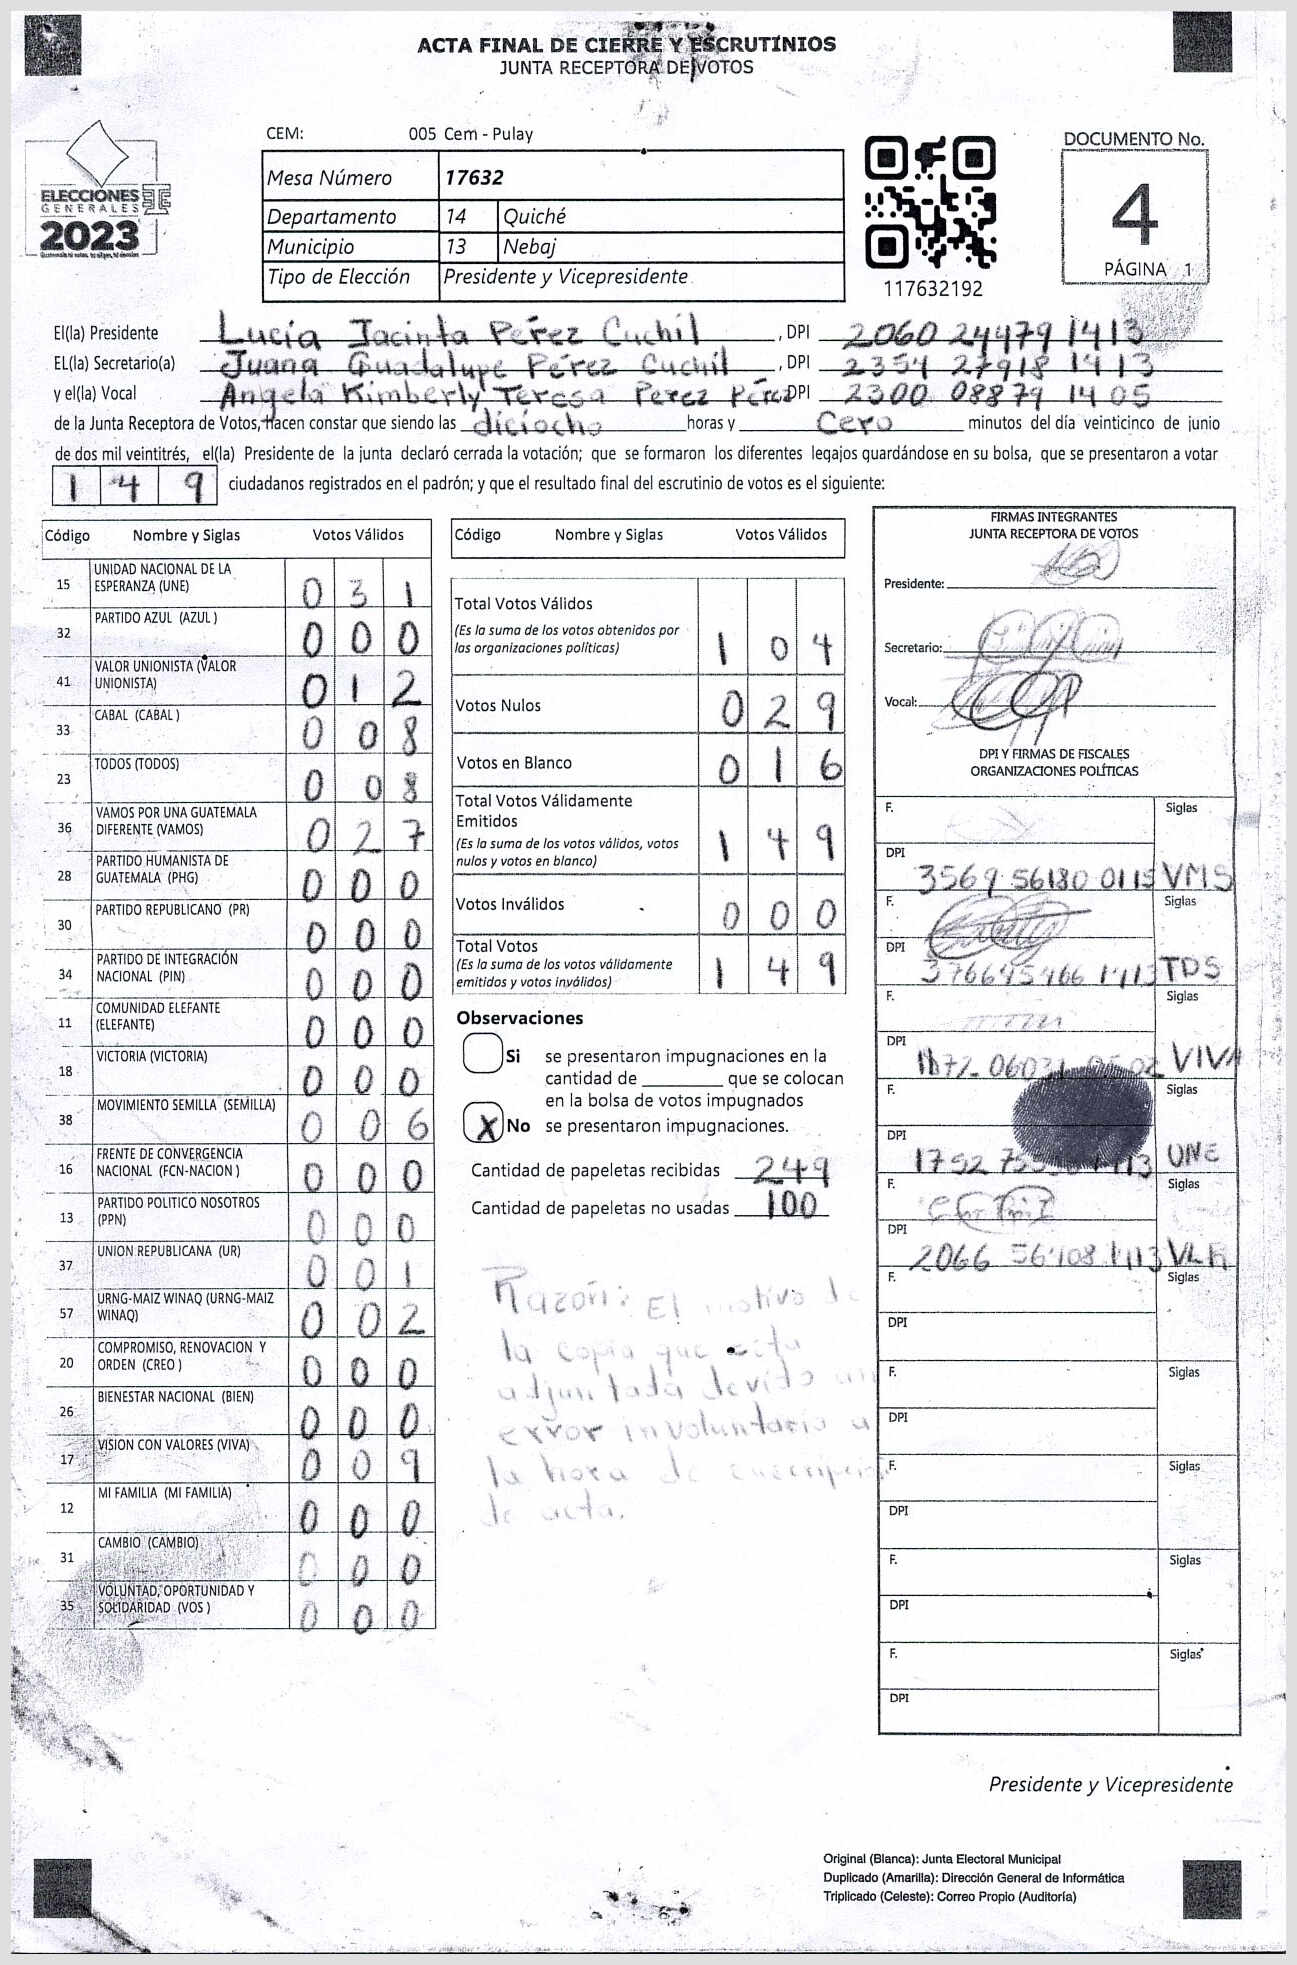 ACTA FINAL DE CIERRE Y ESCRUTINIOS
JUNTA RECEPTORA DE VOTOS
CEM: 005 Cem - Pulay
ELECCIONES
GENERALES
2023
Mesa Número 17632
Departamento 14 Quiché
Municipio 13 Nebaj
Tipo de Elección Presidente y Vicepresidente
117632192
DOCUMENTO No.
4
PÁGINA 1
El(la) Presidente Lucía Jacinta Pérez Cuchil, DPI 2060 24479 1413
EL(la) Secretario(a) Juana Guadalupe Pérez Cuchil, DPI 2354 27918 1413
y el(la) Vocal Angela Kimberly Teresa Perez Pérez DPI 2300 08879 1405
de la Junta Receptora de Votos, hacen constar que siendo las diciocho horas y Cero minutos del día veinticinco de junio
de dos mil veintitrés, el(la) Presidente de la junta declaró cerrada la votación; que se formaron los diferentes legajos guardándose en su bolsa, que se presentaron a votar
1 4 9 ciudadanos registrados en el padrón; y que el resultado final del escrutinio de votos es el siguiente:
Código Nombre y Siglas Votos Válidos
15 UNIDAD NACIONAL DE LA
ESPERANZA (UNE) 0 3 1
32 PARTIDO AZUL (AZUL) 0 0 0
41 VALOR UNIONISTA (VALOR
UNIONISTA) 0 1 2
33 CABAL (CABAL) 0 0 8
23 TODOS (TODOS) 0 0 8
36 VAMOS POR UNA GUATEMALA
DIFERENTE (VAMOS) 0 2 7
28 PARTIDO HUMANISTA DE
GUATEMALA (PHG) 0 0 0
30 PARTIDO REPUBLICANO (PR) 0 0 0
34 PARTIDO DE INTEGRACIÓN
NACIONAL (PIN) 0 0 0
11 COMUNIDAD ELEFANTE
(ELEFANTE) 0 0 0
18 VICTORIA (VICTORIA) 0 0 0
38 MOVIMIENTO SEMILLA (SEMILLA) 0 0 6
16 FRENTE DE CONVERGENCIA
NACIONAL (FCN-NACION) 0 0 0
13 PARTIDO POLITICO NOSOTROS
(PPN) 0 0 0
37 UNION REPUBLICANA (UR) 0 0 1
57 URNG-MAIZ WINAQ (URNG-MAIZ
WINAQ) 0 0 2
20 COMPROMISO, RENOVACION Y
ORDEN (CREO) 0 0 0
26 BIENESTAR NACIONAL (BIEN) 0 0 0
17 VISION CON VALORES (VIVA) 0 0 9
12 MI FAMILIA (MI FAMILIA) 0 0 0
31 CAMBIO (CAMBIO) 0 0 0
35 VOLUNTAD, OPORTUNIDAD Y
SOLIDARIDAD (VOS) 0 0 0
Código Nombre y Siglas Votos Válidos
Total Votos Válidos
(Es la suma de los votos obtenidos por
las organizaciones políticas) 1 0 4
Votos Nulos 0 2 9
Votos en Blanco 0 1 6
Total Votos Válidamente
Emitidos
(Es la suma de los votos válidos, votos
nulos y votos en blanco) 1 4 9
Votos Inválidos 0 0 0
Total Votos
(Es la suma de los votos válidamente
emitidos y votos inválidos) 1 4 9
Observaciones
Si se presentaron impugnaciones en la
cantidad de que se colocan
en la bolsa de votos impugnados
X No se presentaron impugnaciones.
Cantidad de papeletas recibidas 249
Cantidad de papeletas no usadas 100
Razón: El motivo de
la copia que esta
adjuntada devido un
error involuntario a
la hora de
de acta.
FIRMAS INTEGRANTES
JUNTA RECEPTORA DE VOTOS
Presidente:
Secretario:
Vocal:
DPI Y FIRMAS DE FISCALES
ORGANIZACIONES POLÍTICAS
F. Siglas
DPI 3569 56180 0115 VMS
F. Siglas
DPI 1413 TDS
F. Siglas
DPI VIVA
F. Siglas
DPI 1752 UNE
F. Siglas
DPI 2066 56108 1413 VLR
F. Siglas
DPI
F. Siglas
DPI
F. Siglas
DPI
F. Siglas
DPI
F. Siglas
DPI
Presidente y Vicepresidente
Original (Blanca): Junta Electoral Municipal
Duplicado (Amarilla): Dirección General de Informática
Triplicado (Celeste): Correo Propio (Auditoría)